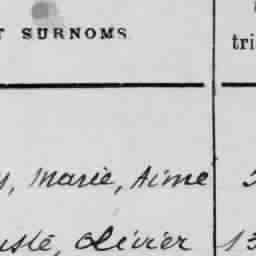 T SURNOMS
tri
, Marie, Aimé
uste, Olivier 13